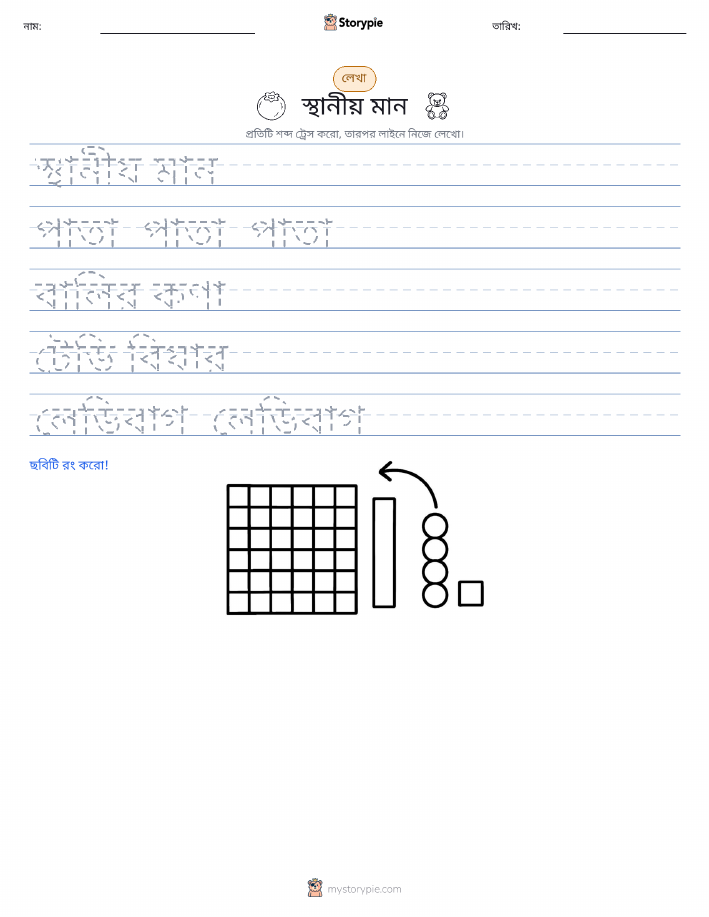 নাম:
Storypie
তারিখ:
লেখা
স্থানীয় মান
প্রতিটি শব্দ ট্রেস করো, তারপর লাইনে নিজে লেখো।
স্থানীয় মান
পাতা পাতা পাতা
বালির কণা
টেডি বিয়ার
লেডিবাগ লেডিবাগ
ছবিটি রং করো!
mystorypie.com